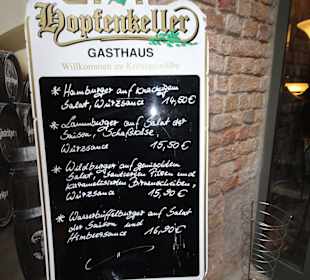 Hopfenkeller
GASTHAUS
Willkommen im
* Hamburger auf knackigem
Salat, Würzsauce 14,50 €
* Lammburger auf Salat der
Saison, Schafskäse,
Würzsauce 15,50 €
* Wildburger auf gemischtem
Salat, sautierten Pilzen und
karamelisierten Birnenscheiben,
Würzsauce 15,90 €
* Wasserbüffelburger auf Salat
der Saison und
Himbeersauce 16,90 €